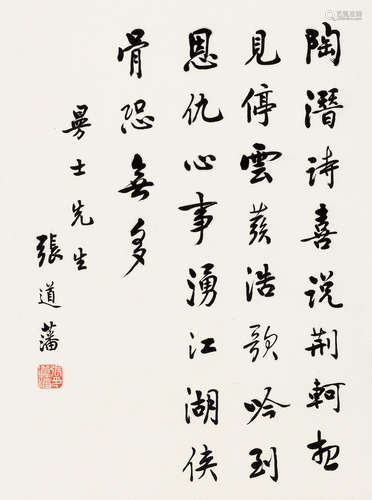 陶潛诗喜说荆軻想
見停雲發浩歌吟到
恩仇心事湧江湖俠
骨恐無多
昜士先生
張道藩